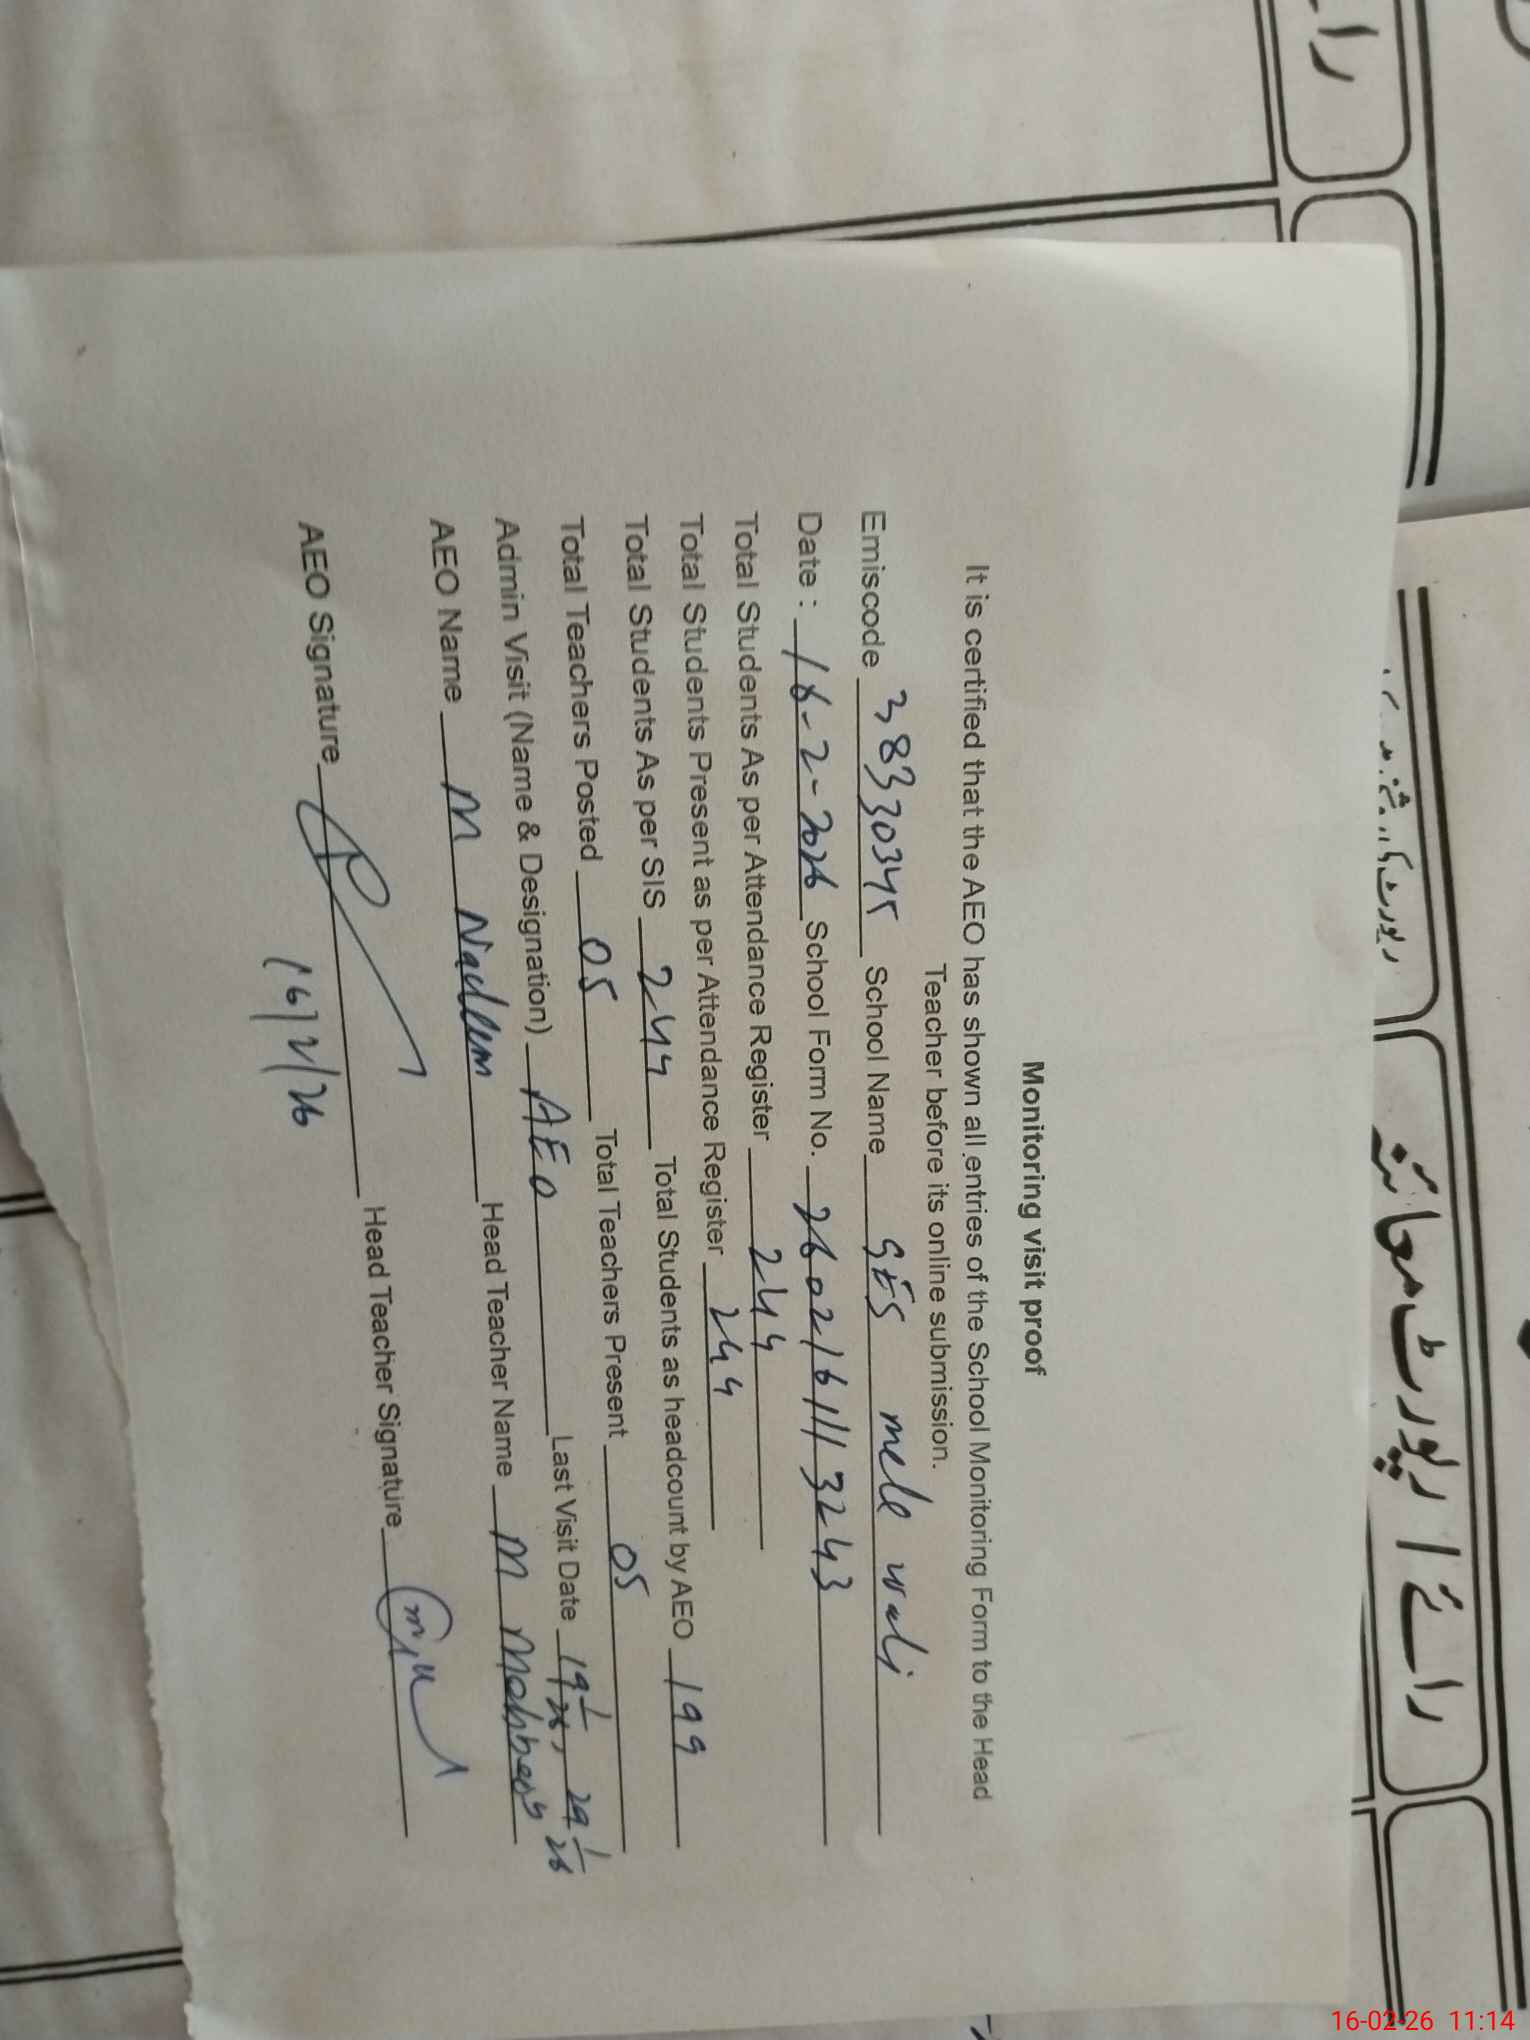 Monitoring visit proof
It is certified that the AEO has shown all entries of the School Monitoring Form to the Head
Teacher before its online submission.
Emiscode 38330345 School Name GES mele wali
Date : 16-2-2026 School Form No. 260216111 3243
Total Students As per Attendance Register 244
Total Students Present as per Attendance Register 244
Total Students As per SIS 244 Total Students as headcount by AEO 199
Total Teachers Posted 05 Total Teachers Present 05
Admin Visit (Name & Designation) AEO Last Visit Date 19 1/26, 29 1/26
AEO Name M Nadeem Head Teacher Name M Mehboob
AEO Signature Head Teacher Signature
16/2/26
رائے / رپورٹ معائنہ
را
16-02-26 11:14